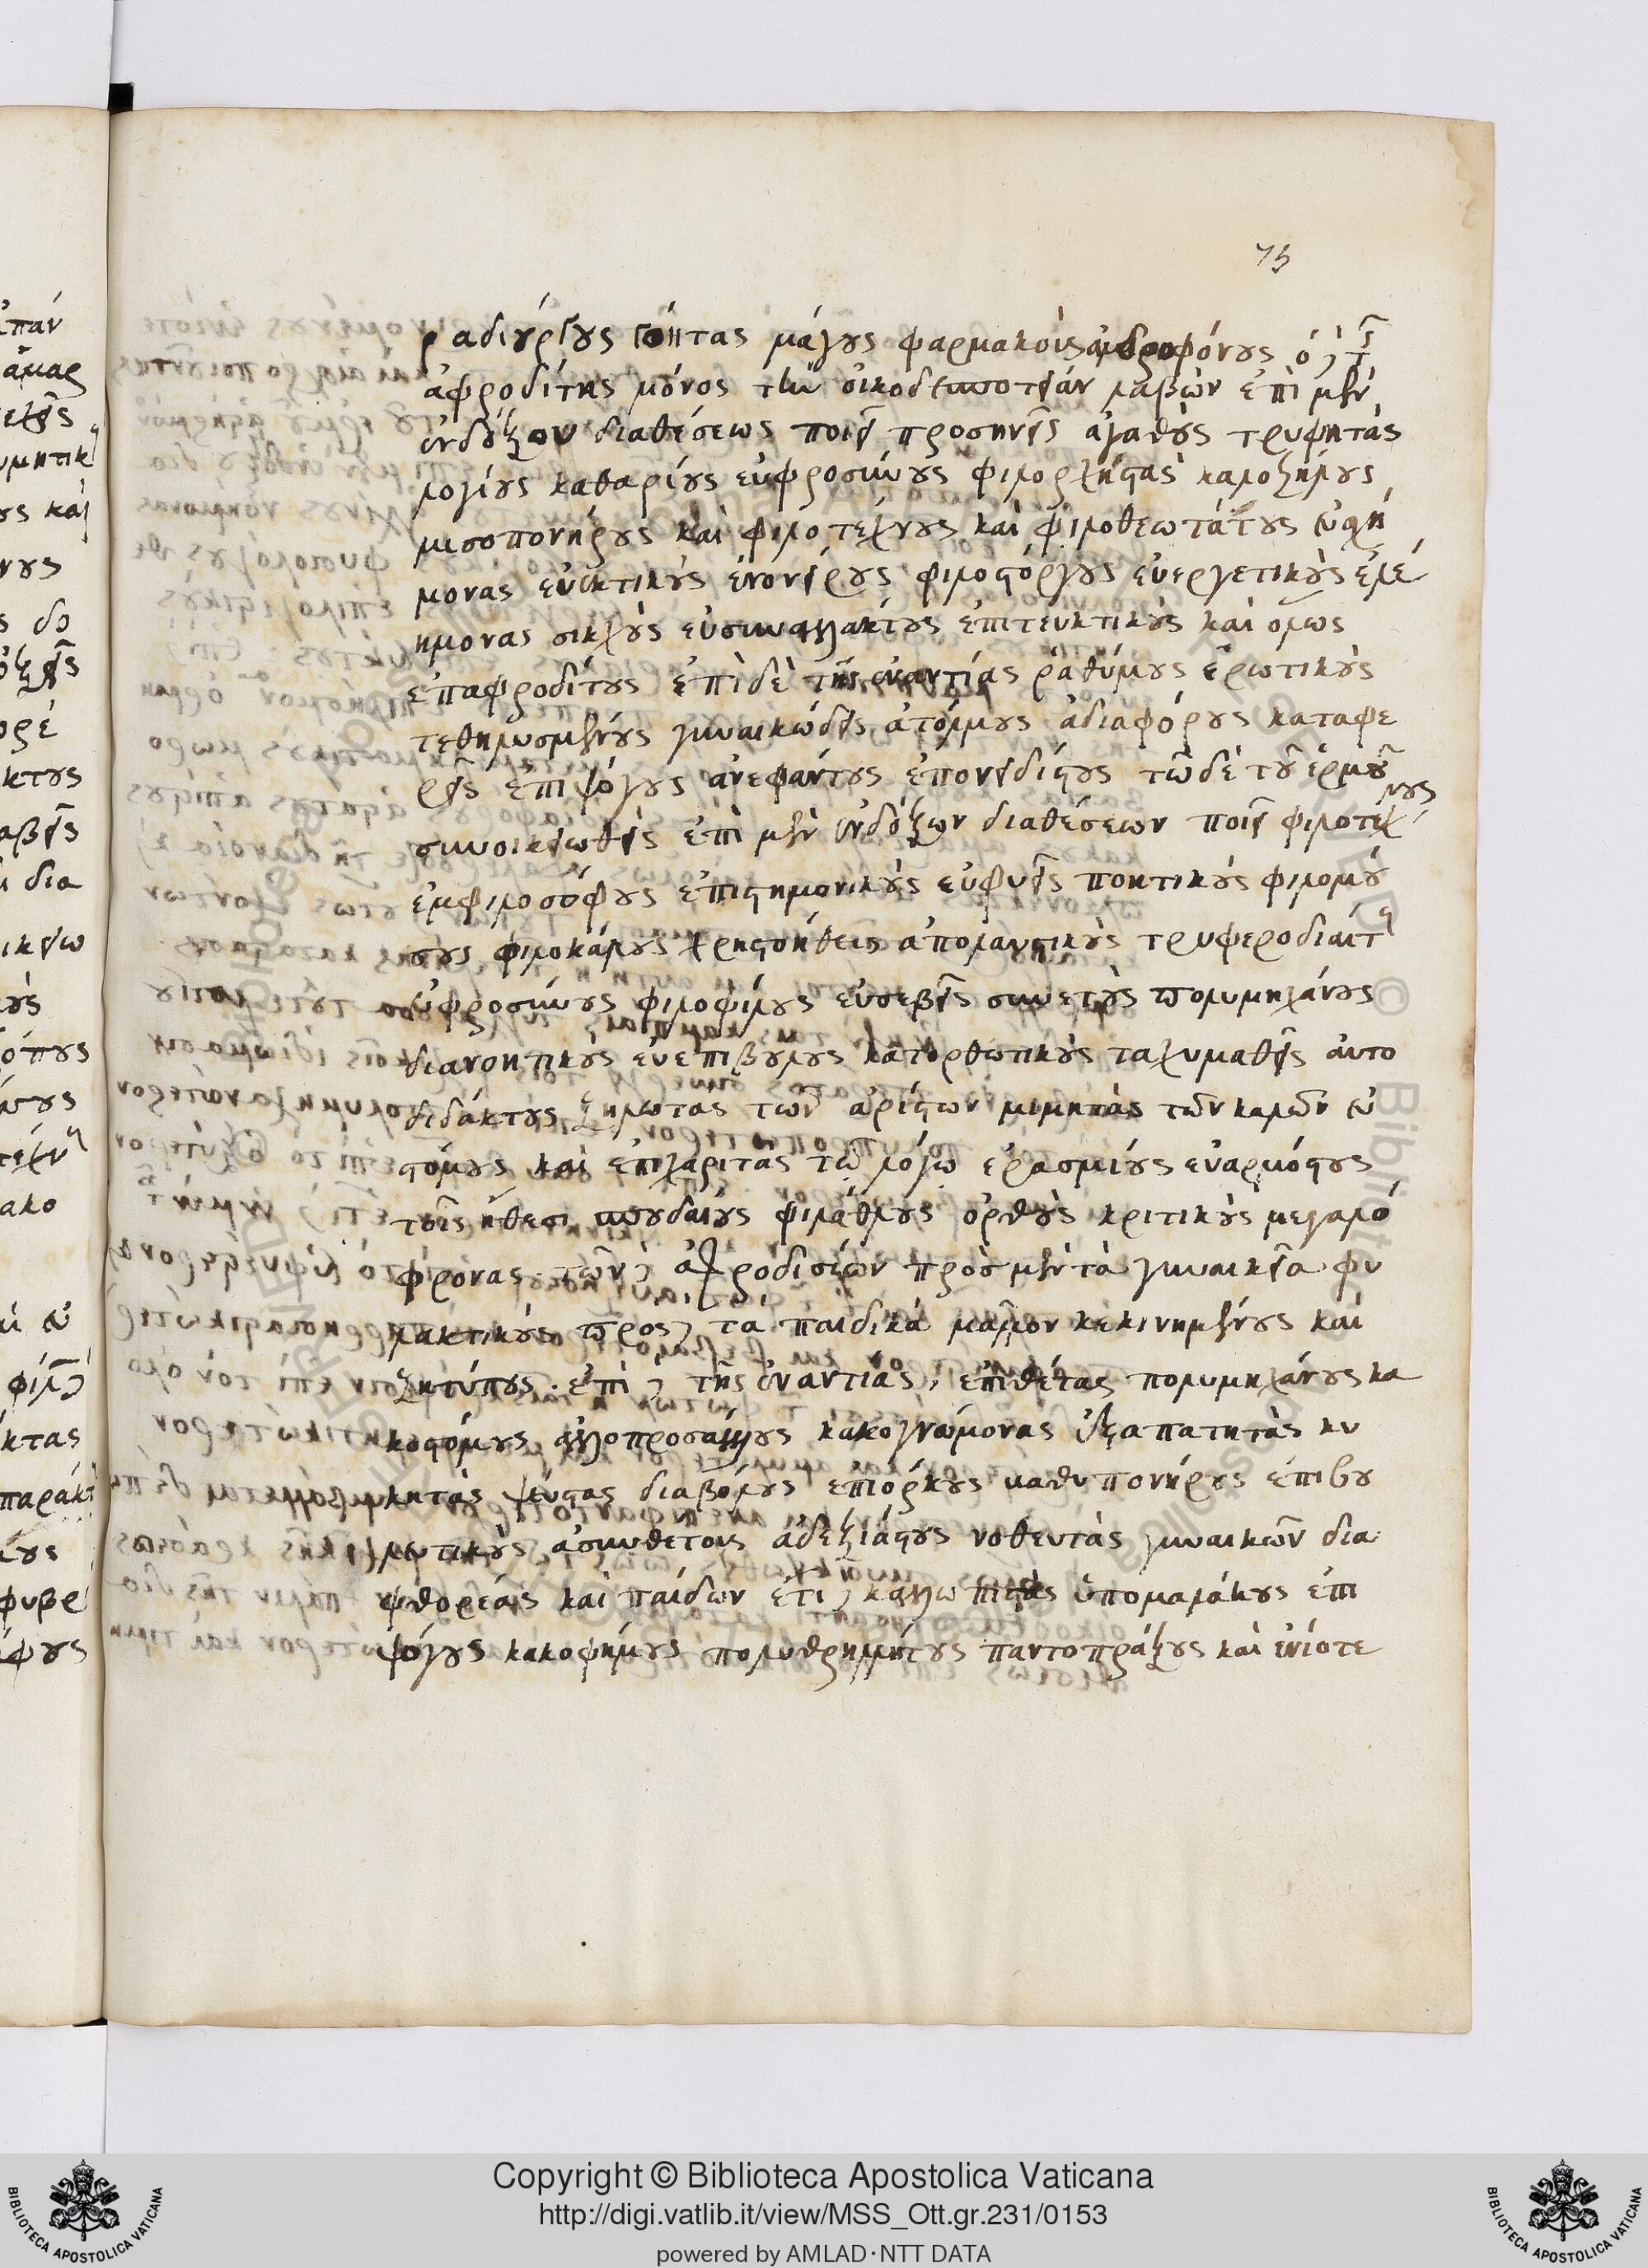 75
ραδιούργους γόητας μάγους φαρμακοὺς ἀνδροφόνους ὁ δὲ τῆς
ἀφροδίτης μόνος τὴν οἰκοδεσποτείαν λαβὼν ἐπὶ μὲν
ἐνδόξου διαθέσεως ποιεῖ προσηνεῖς ἀγαθοὺς τρυφητὰς
λογίους καθαρίους εὐφροσύνους φιλορχήστας καλοζήλους
μισοπονήρους καὶ φιλοτέχνους καὶ φιλοθεωτάτους εὐσχή
μονας εὐεκτικοὺς ἐνονείρους φιλοστόργους εὐεργετικοὺς ἐλε
ήμονας σικχοὺς εὐσυναλλάκτους ἐπιτευκτικοὺς καὶ ὅλως
ἐπαφροδίτους ἐπὶ δὲ τῆς ἐναντίας ῥαθύμους ἐρωτικοὺς
τεθηλυσμένους γυναικώδεις ἀτόλμους ἀδιαφόρους καταφε
ρεῖς ἐπιψόγους ἀνεφάντους ἐπονειδίστους τῶ δὲ τοῦ ἑρμοῦ
συνοικειωθεὶς ἐπὶ μὲν ἐνδόξων διαθέσεων ποιεῖ φιλοτέχνους
ἐμφιλοσόφους ἐπιστημονικοὺς εὐφυεῖς ποητικοὺς φιλομού
σους φιλοκάλους χρηστοήθεις ἀπολαυστικοὺς τρυφεροδιαίτ
εὐφροσύνους φιλοφίλους εὐσεβεῖς συνετοὺς πολυμηχάνους
διανοητικοὺς εὐεπιβούλους κατορθωτικοὺς ταχυμαθεῖς αὐτο
διδάκτους ζηλωτὰς τῶν ἀρίστων μιμητὰς τῶν καλῶν εὐ
στόμους καὶ ἐπιχάριτας τῷ λόγῳ ἐρασμίους εὐαρμόστους
τοῖς ἤθεσι σπουδαίους φιλάθλους ὀρθοὺς κριτικοὺς μεγαλό
φρονας τῶν δὲ ἀφροδισίων πρὸς μὲν τὰ γυναικεῖα φυ
λακτικοὺς πρὸς δὲ τὰ παιδικὰ μᾶλλον κεκινημένους καὶ
ζητύπους. ἐπὶ δὲ τῆς ἐναντίας, ἐπιθέτας πολυμηχάνους κα
κοστόμους ἀλλοπροσάλλους κακογνώμονας ἐξαπατητὰς κυ
κητὰς ψεύστας διαβόλους ἐπιόρκους βαθυπονήρους ἐπιβου
λευτικοὺς ἀσυνθέτους ἀδεξιάστους νοθευτὰς γυναικῶν δια
φθορέας καὶ παίδων ἔτι δὲ καλλωπιστὰς ὑπομαλάκους ἐπι
ψόγους κακοφήμους πολυθρηλλήτους παντοπράξους καὶ ἐνίοτε
Copyright © Biblioteca Apostolica Vaticana
http://digi.vatlib.it/view/MSS_Ott.gr.231/0153
powered by AMLAD·NTT DATA
BIBLIOTECA APOSTOLICA VATICANA
BIBLIOTECA APOSTOLICA VATICANA